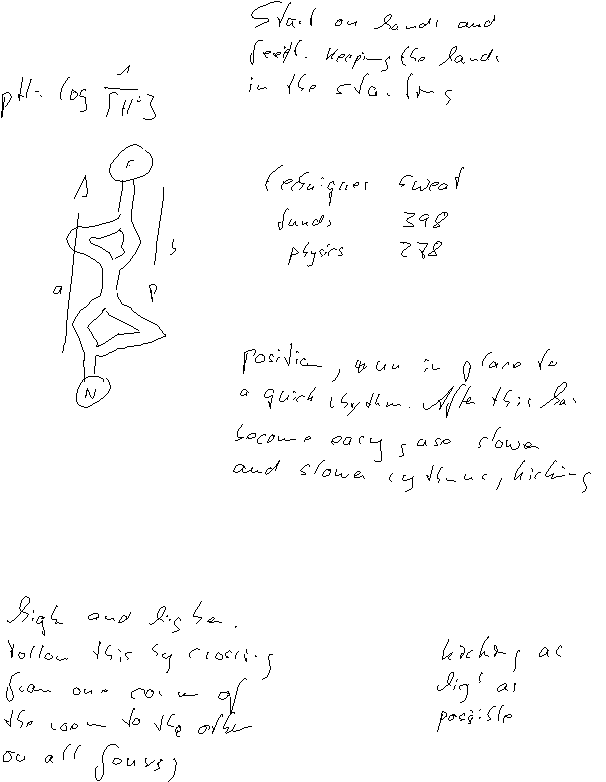 Start on hands and
feet. Keeping the hands
in the starting
pH = log 1/[H+]
F
a
b
P
N
techniques sweat
funds 398
physics 278
position, run in place to
a quick rhythm. After this has
become easy, use slower
and slower rythms, kicking
high and higher.
Follow this by crossing
from one corner of
the room to the other
on all fours,
kicking as
high as
possible